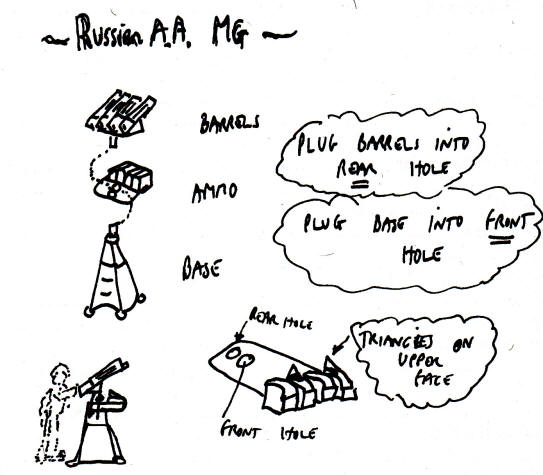 ~ Russian A.A. MG ~
BARRELS
PLUG BARRELS INTO
REAR HOLE
AMMO
PLUG BASE INTO FRONT
HOLE
BASE
REAR HOLE
TRIANGLES ON
UPPER
FACE
FRONT HOLE